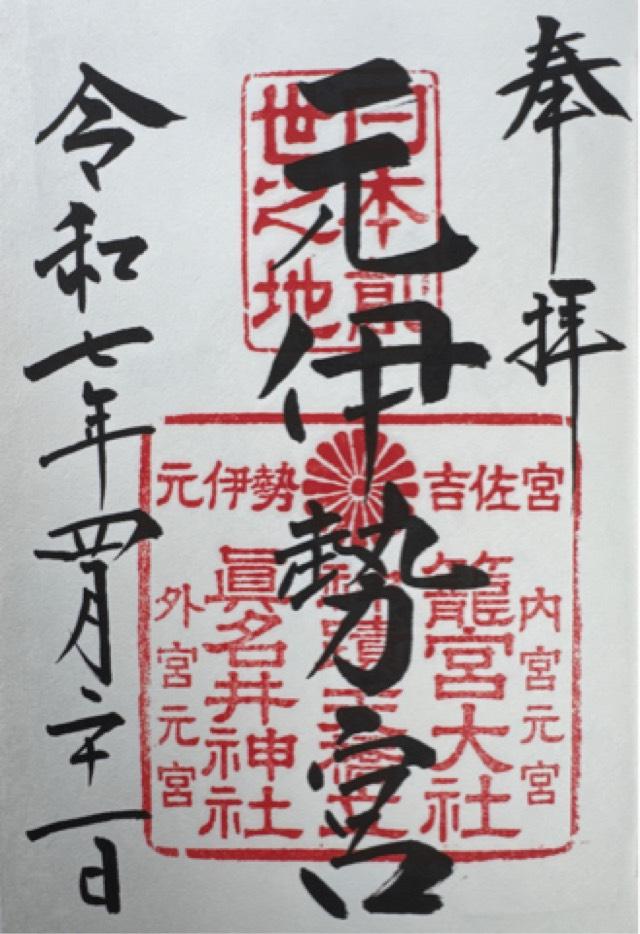 奉拝
日本前
世之地
元伊勢宮
吉佐宮
元伊勢
内宮元宮
籠宮大社
眞名井神社
外宮元宮
令和七年四月二十一日